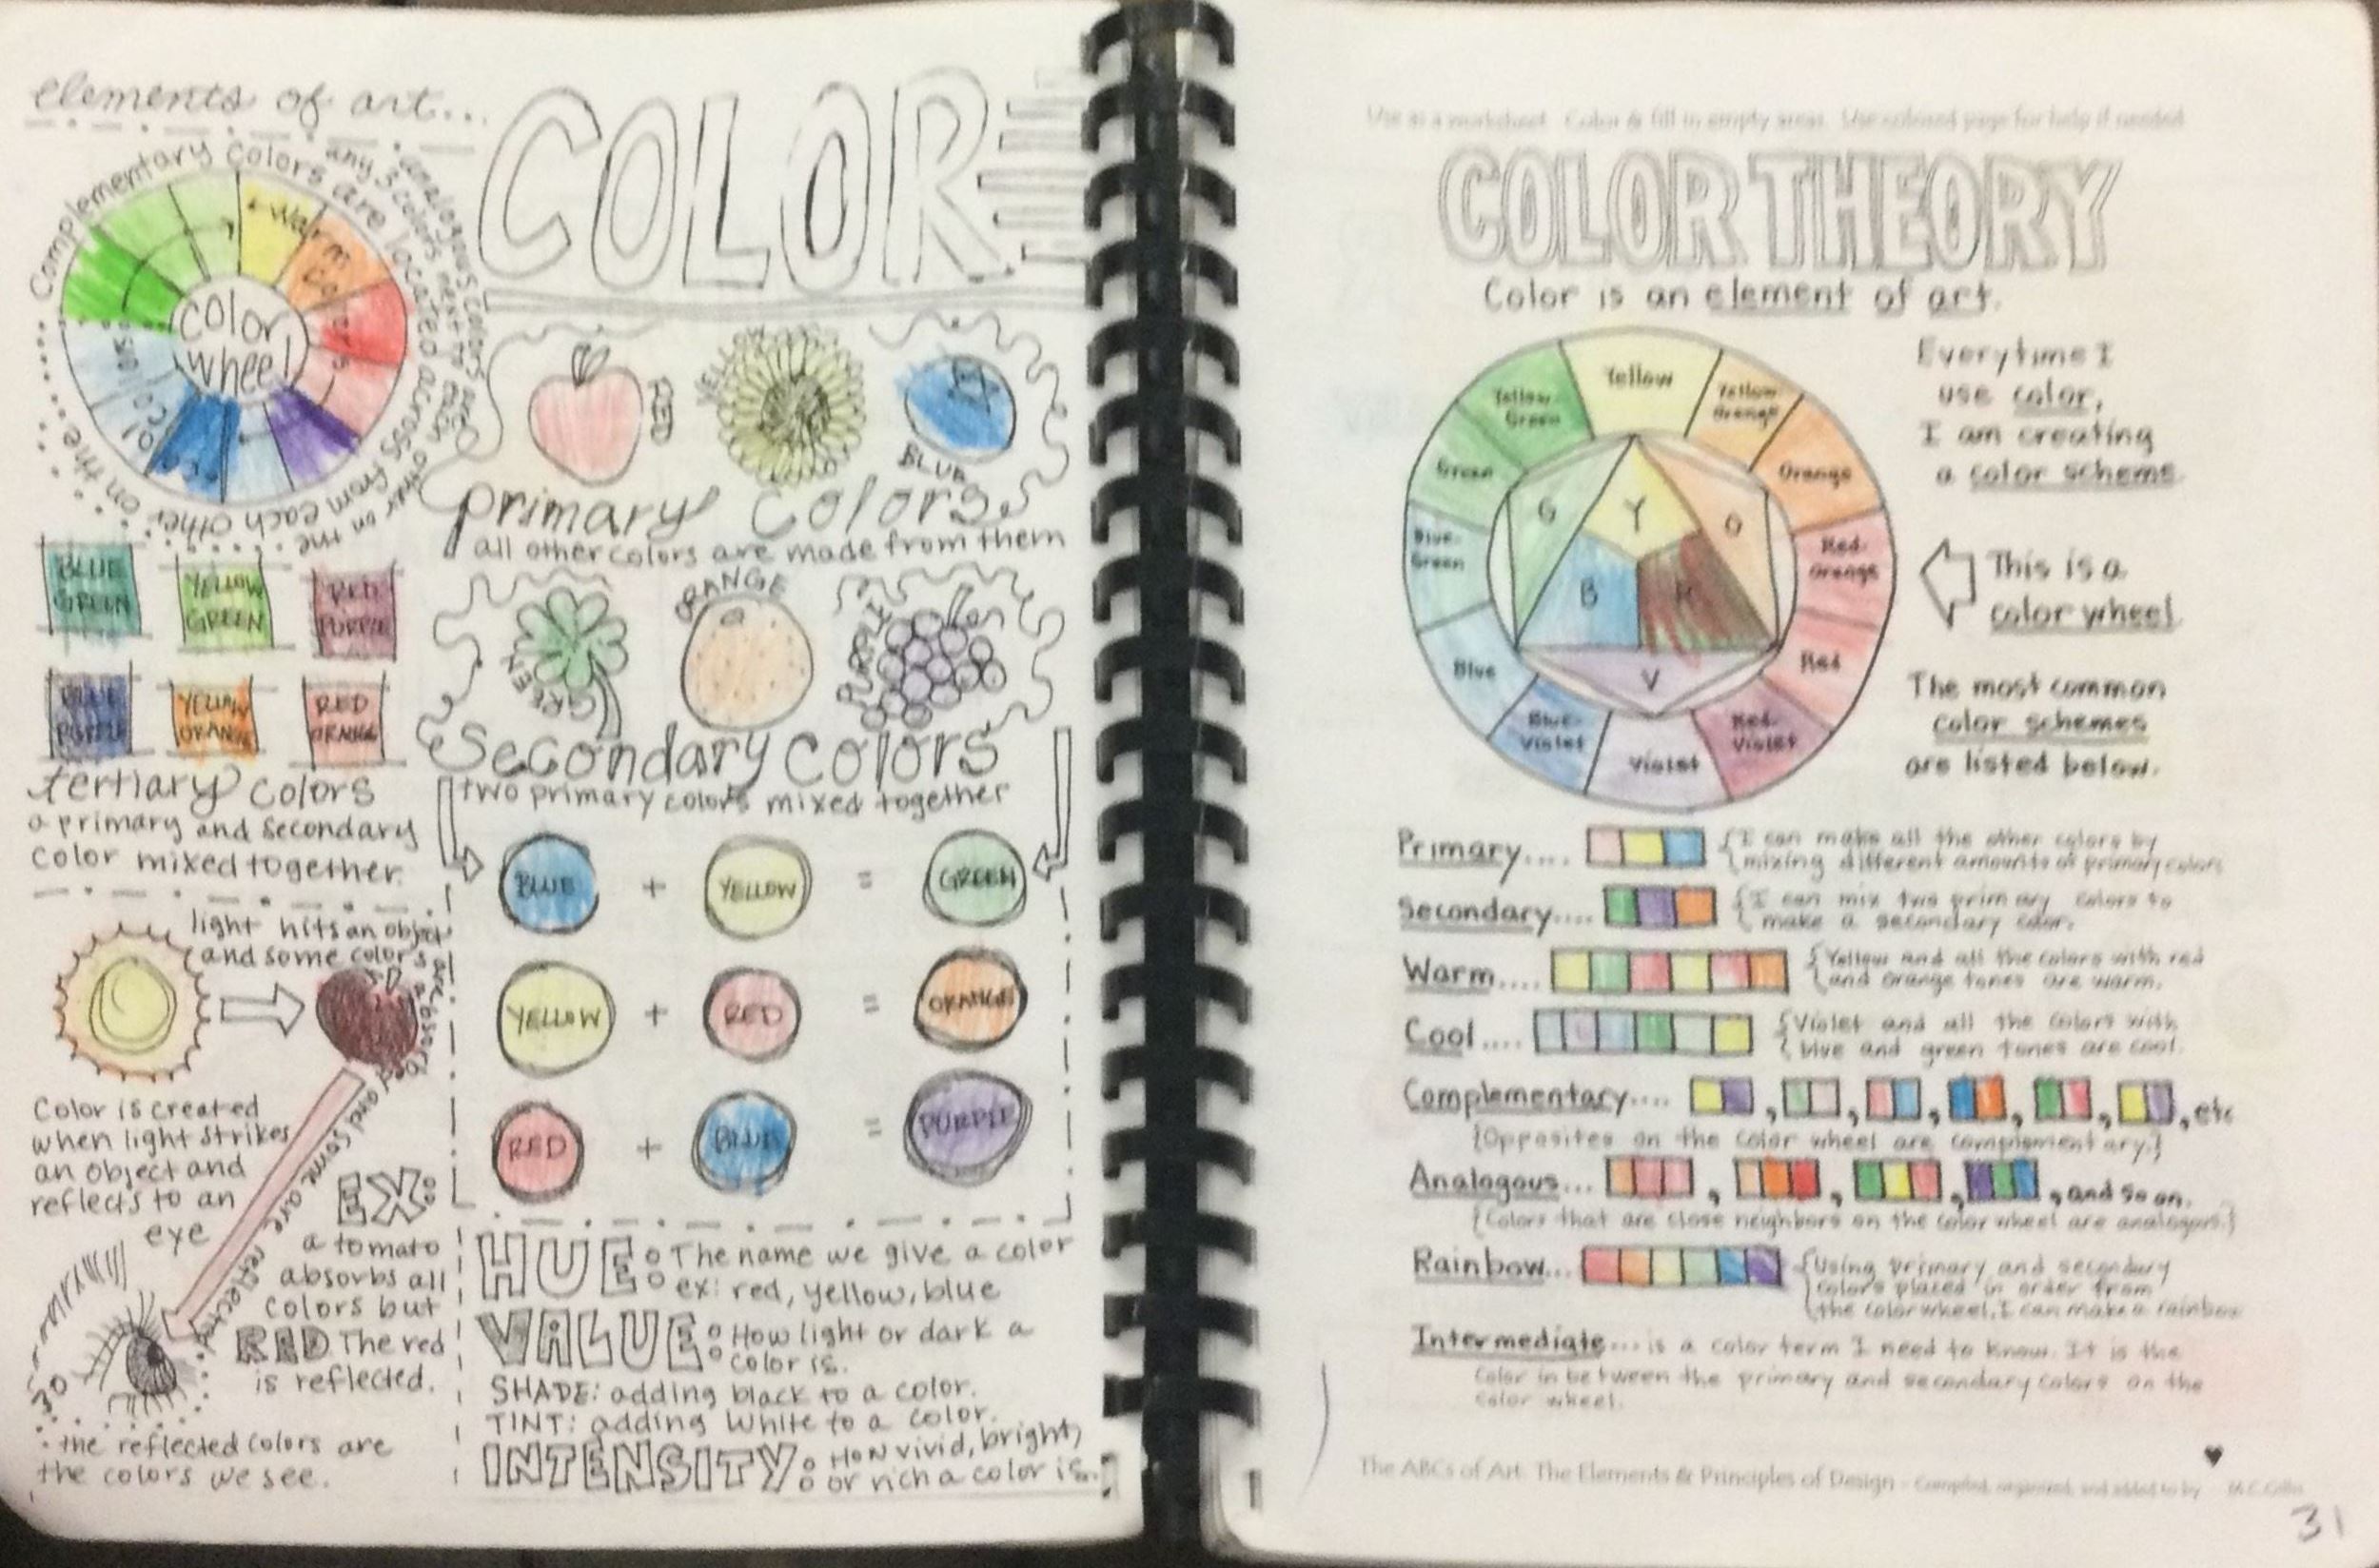 elements of art...
COLOR
Complementary colors are located across from each other on the
analogous colors are
any 3 colors next to each other on the
warm colors
cool colors
color
wheel
RED
YELLOW
BLUE
primary colors
all other colors are made from them
BLUE
GREEN
YELLOW
GREEN
RED
PURPLE
BLUE
PURPLE
YELLOW
ORANGE
RED
ORANGE
tertiary colors
a primary and secondary
color mixed together.
GREEN
ORANGE
PURPLE
Secondary colors
two primary colors mixed together
BLUE + YELLOW = GREEN
YELLOW + RED = ORANGE
RED + BLUE = PURPLE
light hits an object
and some colors are absorbed
and some are reflected
Color is created
when light strikes
an object and
reflects to an
eye
EX:
a tomato
absorbs all
colors but
RED The red
is reflected.
30
the reflected colors are
the colors we see.
HUE: The name we give a color
ex: red, yellow, blue
VALUE: How light or dark a
color is.
SHADE: adding black to a color.
TINT: adding white to a color.
INTENSITY: How vivid, bright,
or rich a color is.
Use as a worksheet. Color & fill in empty areas. Use colored page for help if needed
COLOR THEORY
Color is an element of art.
Yellow
Yellow-
Orange
Orange
Red-
Orange
Red
Red-
Violet
Violet
Blue-
Violet
Blue
Blue-
Green
Green
Yellow-
Green
Y
O
R
V
B
G
Everytime I
use color,
I am creating
a color scheme
This is a
color wheel
The most common
color schemes
are listed below.
Primary.... {I can make all the other colors by
mixing different amounts of primary colors
Secondary.... {I can mix two primary colors to
make a secondary color.
Warm.... {Yellow and all the colors with red
and orange tones are warm.
Cool.... {Violet and all the colors with
blue and green tones are cool.
Complementary.... , , , , , , etc
{Opposites on the color wheel are complementary.}
Analogous... , , , , and so on.
{Colors that are close neighbors on the color wheel are analogous.}
Rainbow... {Using primary and secondary
colors placed in order from
the color wheel, I can make a rainbow
Intermediate.... is a color term I need to know. It is the
color in between the primary and secondary colors on the
color wheel.
The ABCs of Art: The Elements & Principles of Design - Compiled, organized, and added to by
31